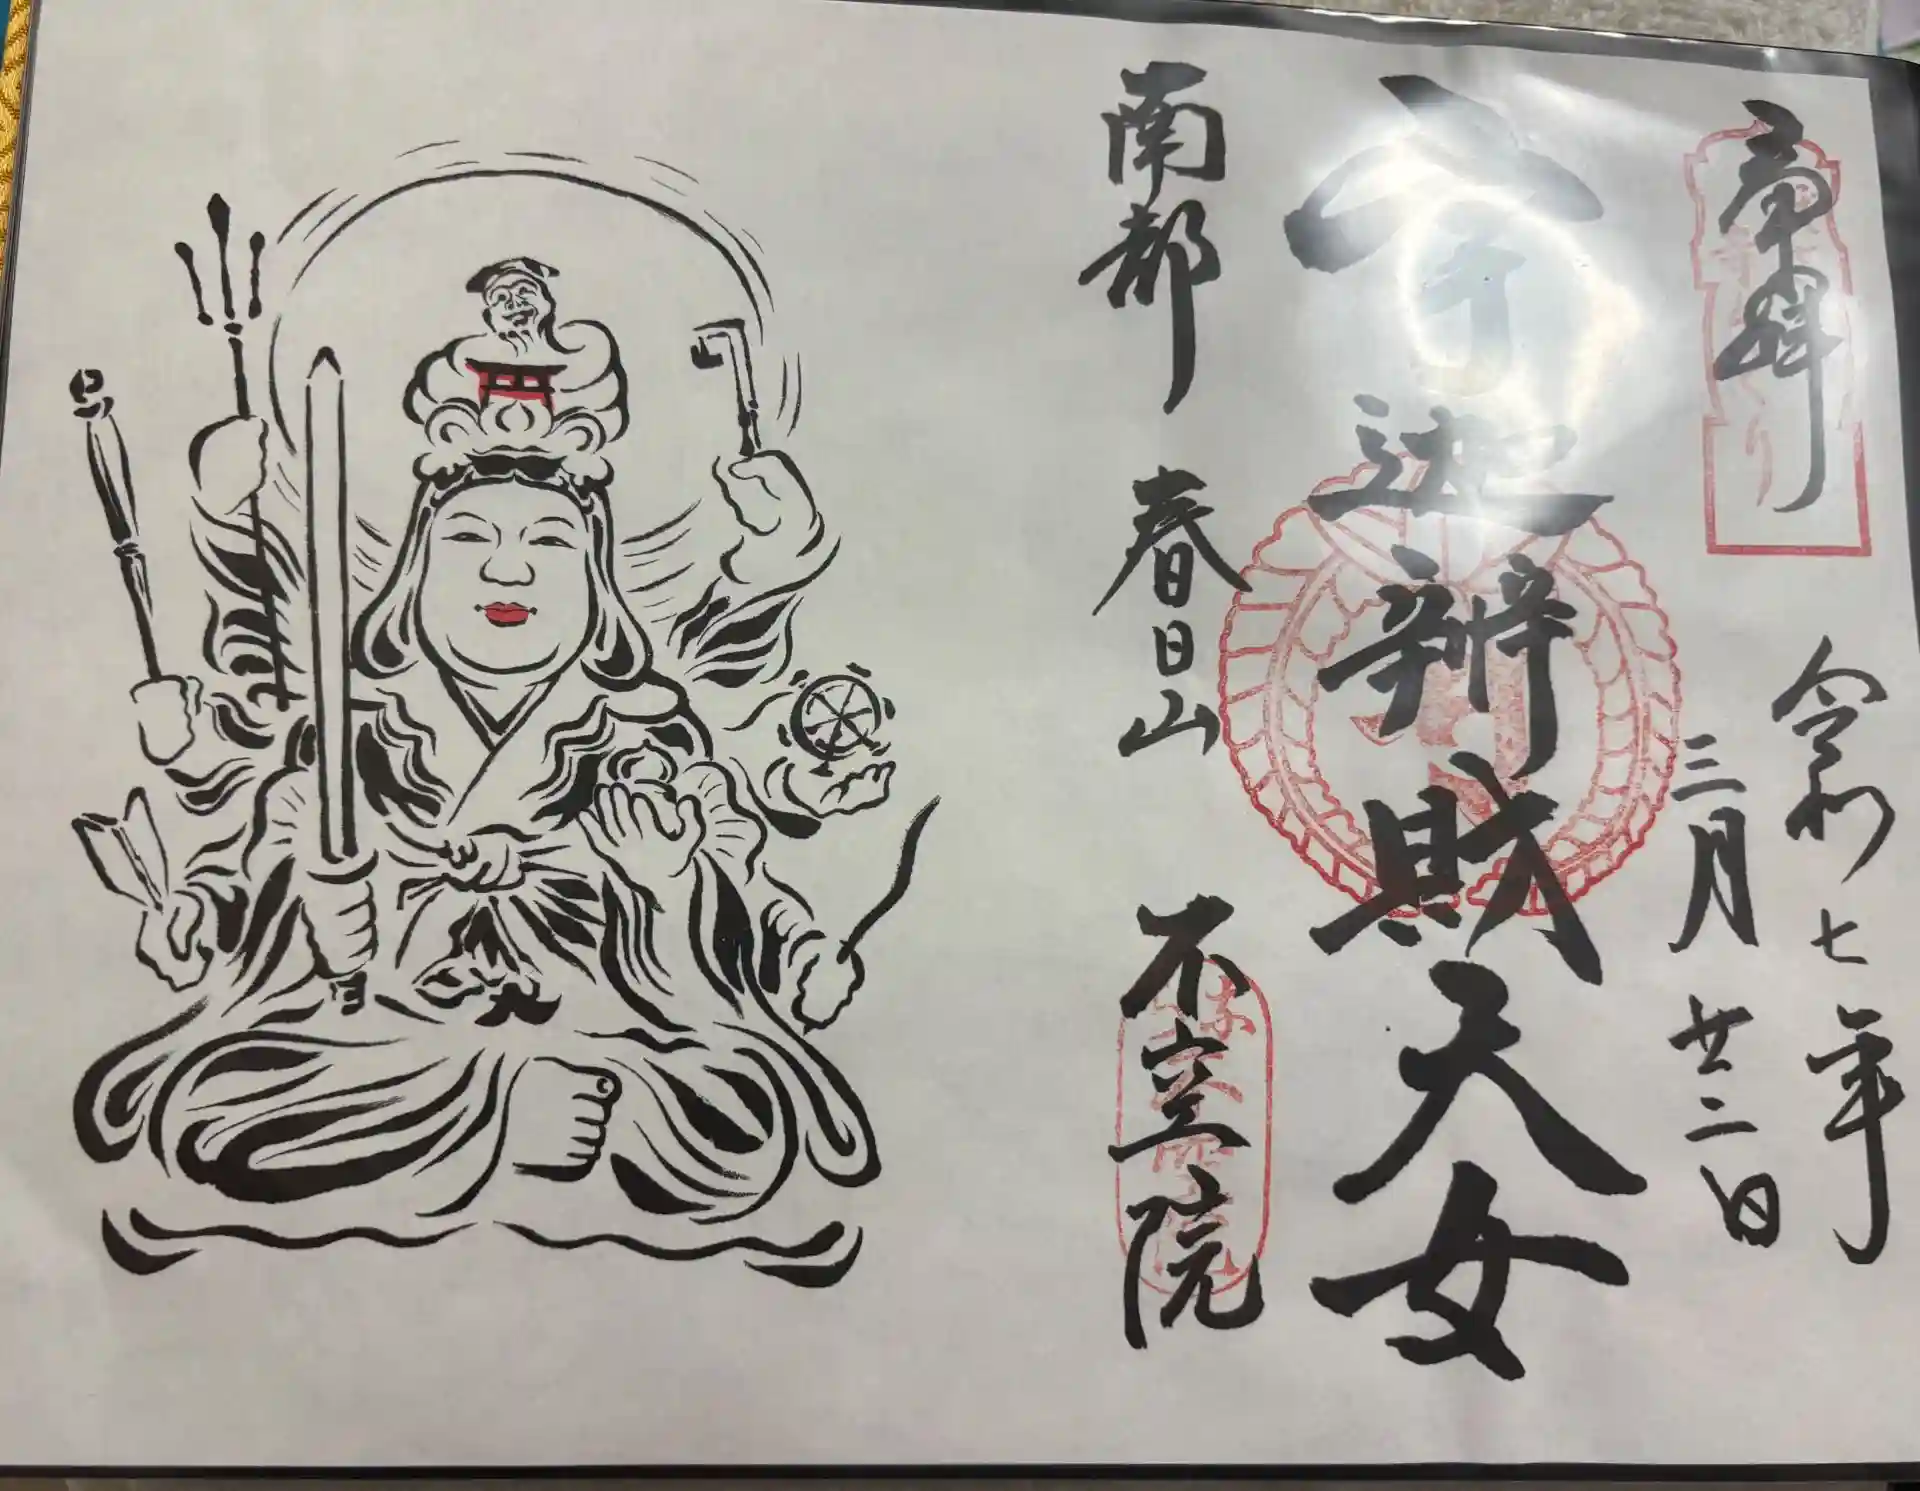 奉拝
令和七年
三月廿二日
宇迦辨財天女
南都 春日山 不空院